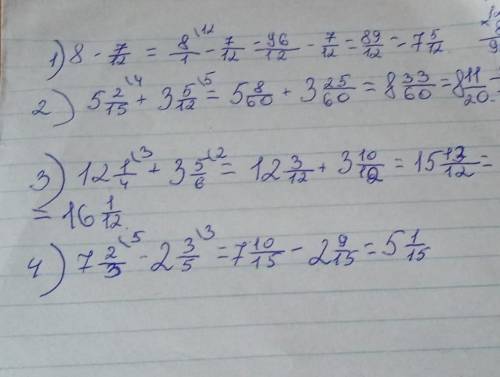 1) 8 - 7/12 = 8/1 \12 - 7/12 = 96/12 - 7/12 = 89/12 = 7 5/12
2) 5 2/15 \4 + 3 5/12 \5 = 5 8/60 + 3 25/60 = 8 33/60 = 8 11/20
3) 12 1/4 \3 + 3 5/6 \2 = 12 3/12 + 3 10/12 = 15 13/12 =
= 16 1/12
4) 7 2/3 \5 - 2 3/5 \3 = 7 10/15 - 2 9/15 = 5 1/15